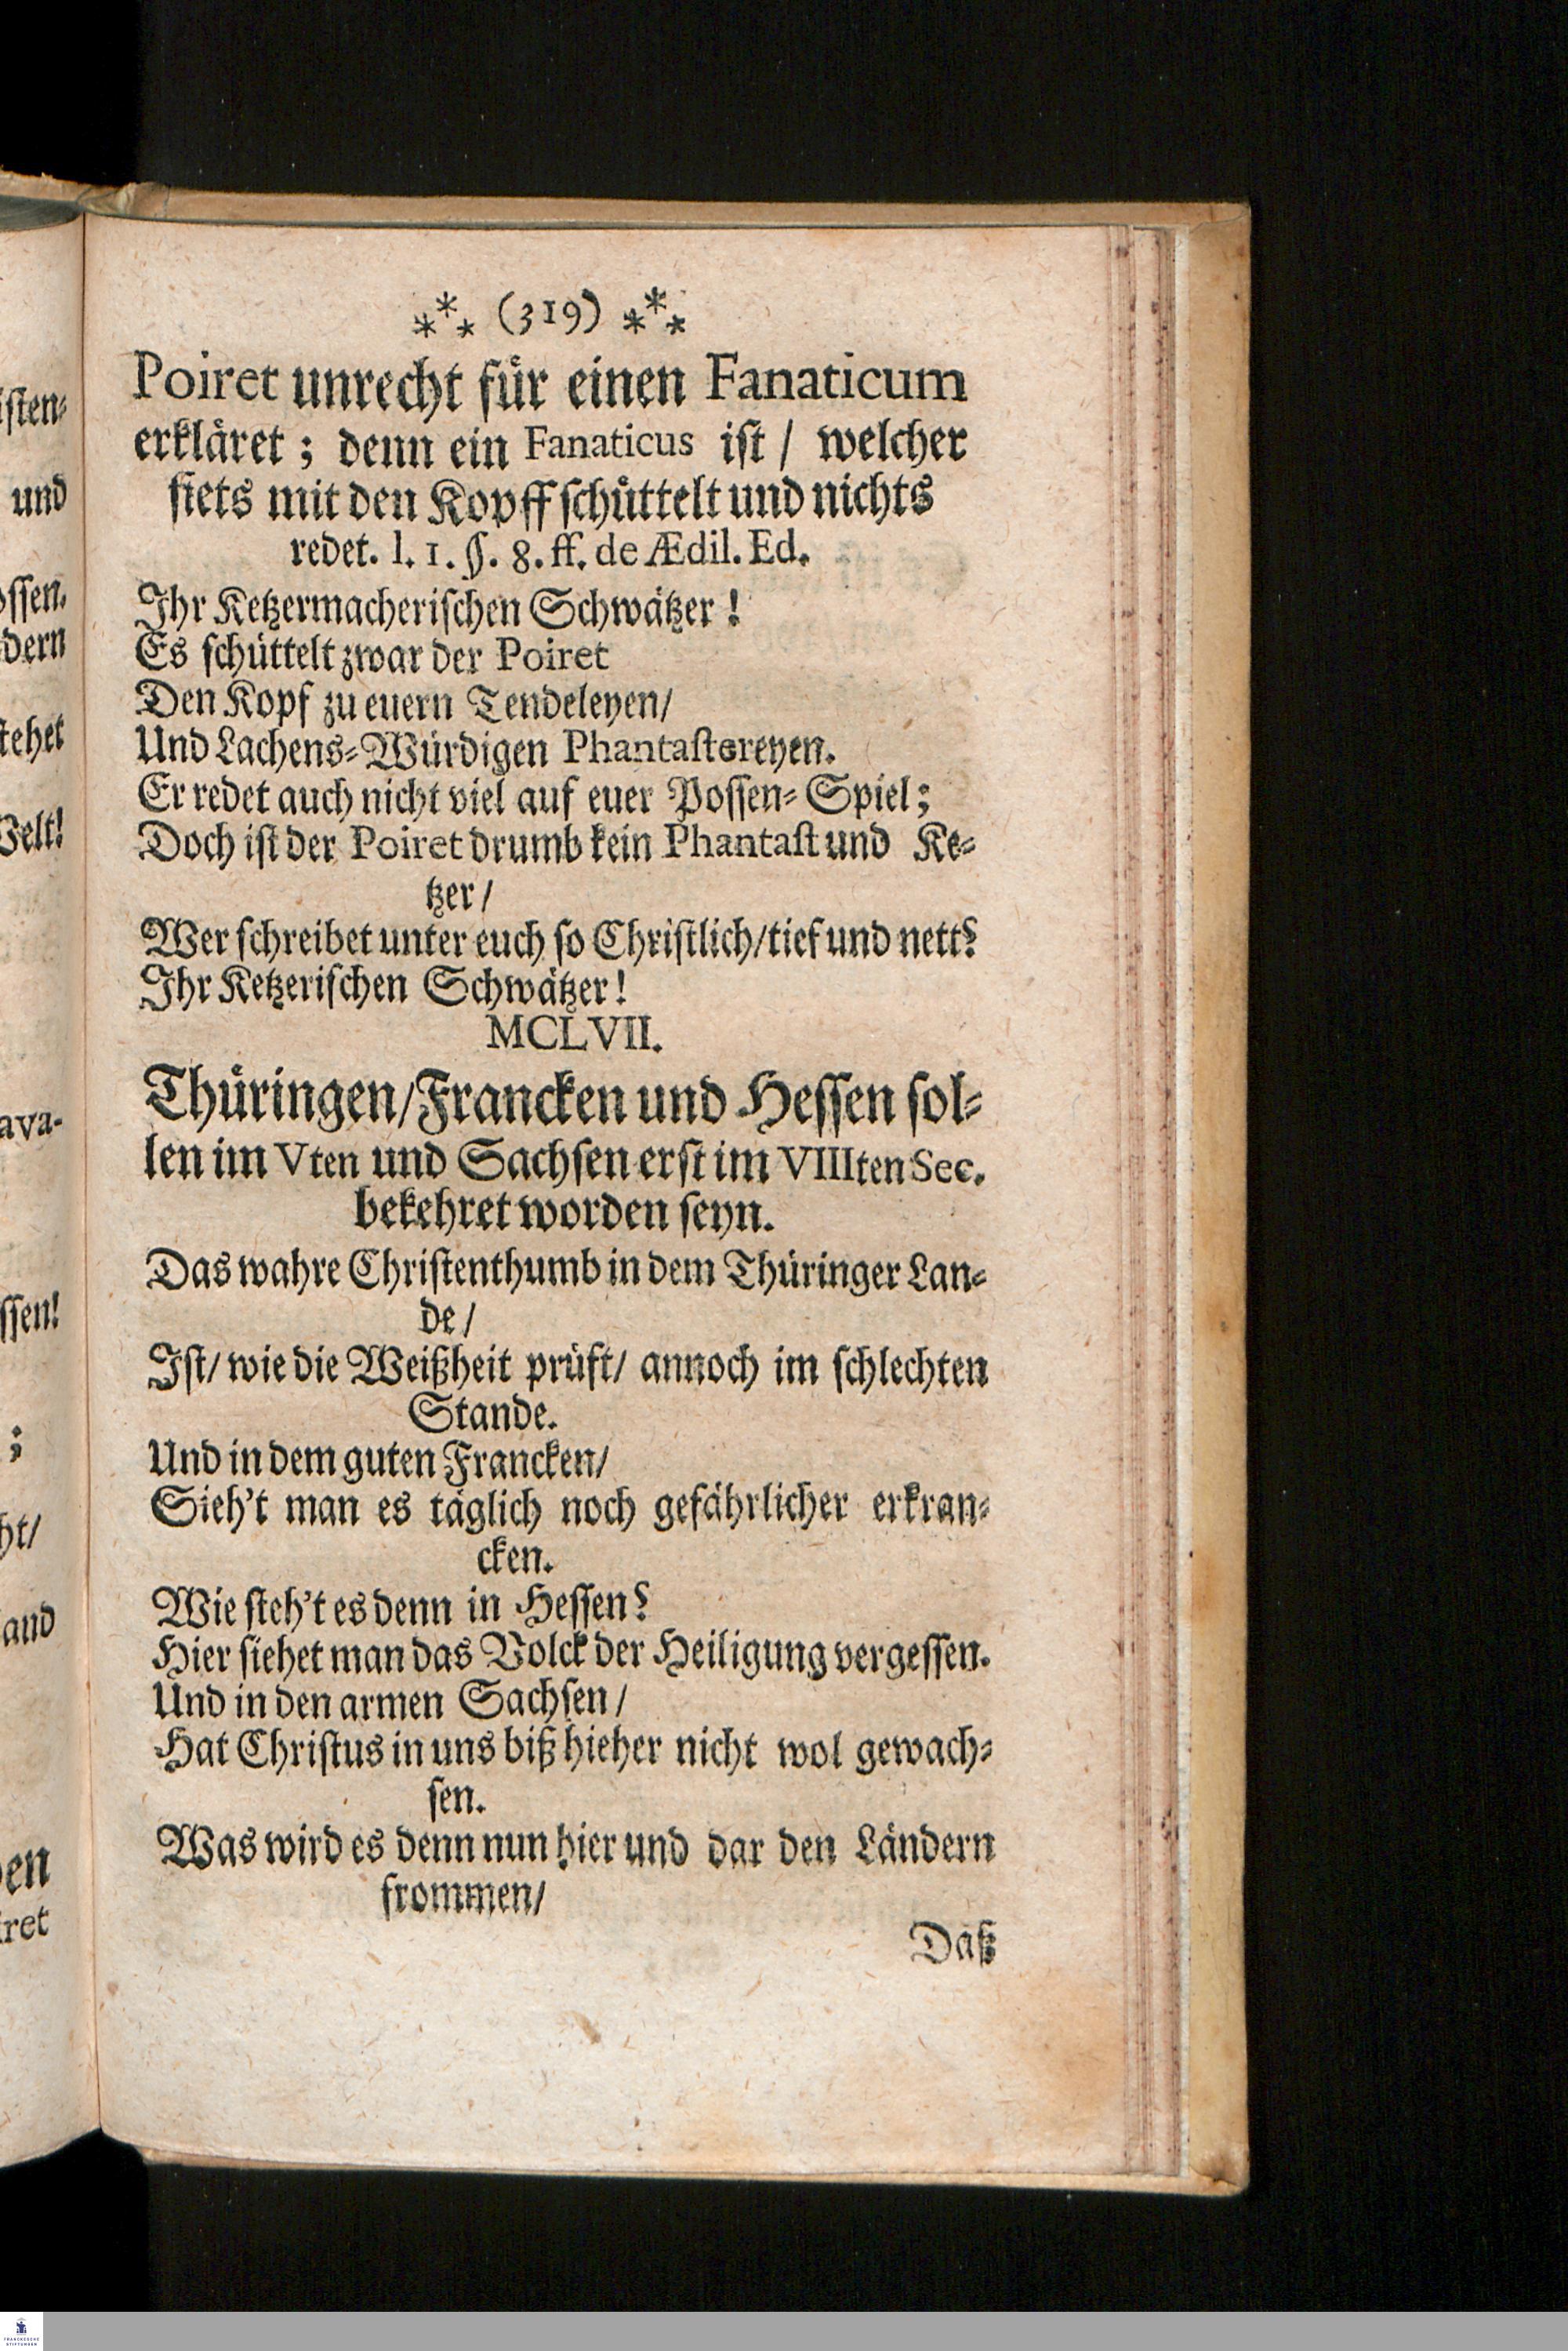 ⁂ (319) ⁂
Poiret unrecht für einen Fanaticum
erkläret; denn ein Fanaticus ist / welcher
stets mit den Kopff schüttelt und nichts
redet. l. 1. §. 8. ff. de ÆDil. Ed.
Ihr Ketzermacherischen Schwätzer!
Es schüttelt zwar der Poiret
Den Kopf zu euern Tendeleyen/
Und Lachens-Würdigen Phantastereyen.
Er redet auch nicht viel auf euer Possen-Spiel;
Doch ist der Poiret drumb kein Phantast und Ke-
tzer/
Wer schreibet unter euch so Christlich/tief und nett?
Ihr Ketzerischen Schwätzer!
MCLVII.
Thüringen/Francken und Hessen sol-
len im Vten und Sachsen erst im VIIIten Sec.
bekehret worden seyn.
Das wahre Christenthumb in dem Thüringer Lan-
de/
Ist/ wie die Weißheit prüft/ annoch im schlechten
Stande.
Und in dem guten Francken/
Sieh't man es täglich noch gefährlicher erkran-
cken.
Wie steh't es denn in Hessen?
Hier siehet man das Volck der Heiligung vergessen.
Und in den armen Sachsen/
Hat Christus in uns biß hieher nicht wol gewach-
sen.
Was wird es denn nun hier und dar den Ländern
frommen/
Daß
isten-
und
ossen.
dern
stehet
Welt!
ava-
ssen!
;
ht/
and
en
iret
FRANCKESCHE
STIFTUNGEN